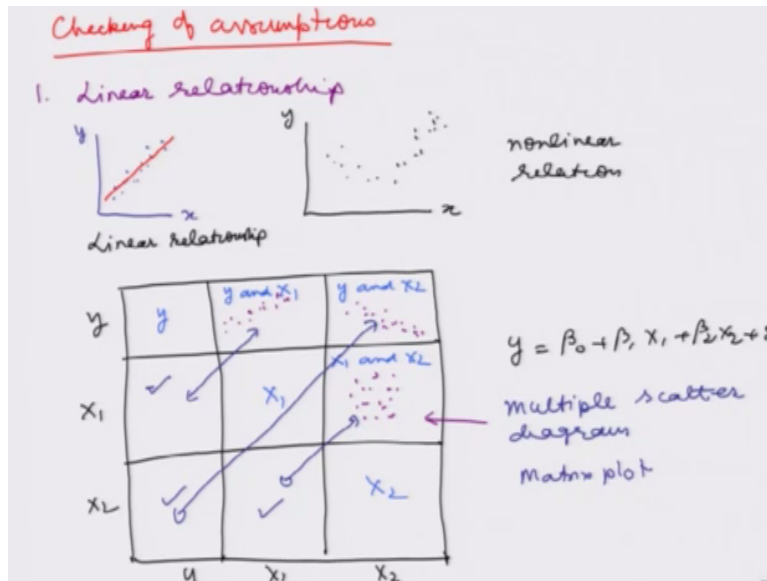 Checking of assumptions
1. Linear relationship
y
x
Linear relationship
y
x
nonlinear
relation
y
y
y and x1
y and x2
x1
x1
x1 and x2
x2
x2
y
x1
x2
y = β0 + β1 x1 + β2 x2 +
multiple scatter
diagram
Matrix plot